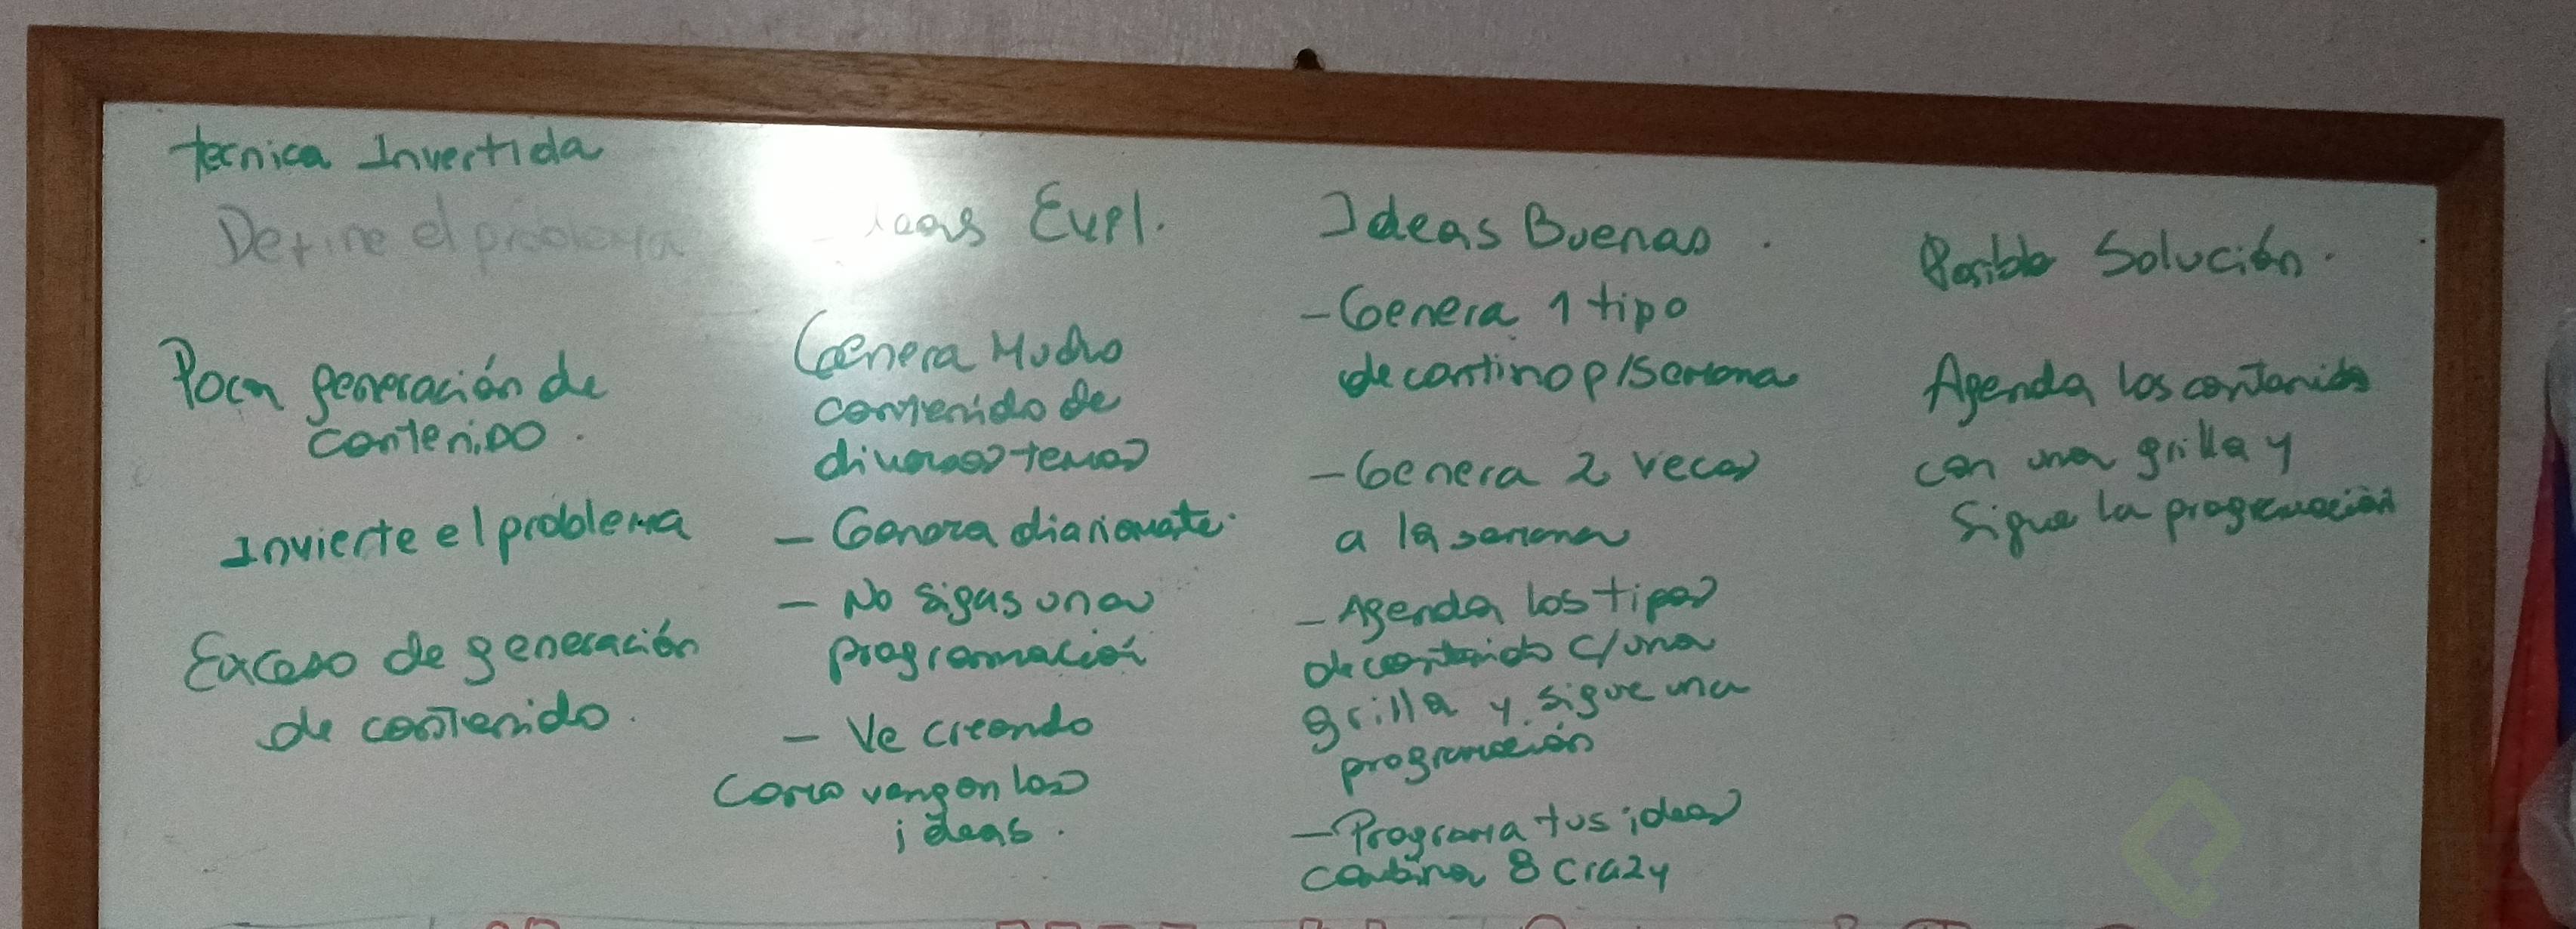 tecnica Invertida
Define el problema
Poca generación de
contenido.
Invierte el problema
Exceso de generación
de contenido.
Ideas Evpl.
Genera Mucho
contenido de
diversos temas
- Genera diariamente.
- No sigas una
programación
- Ve creando
como vengan las
ideas.
Ideas Buenas.
- Genera 1 tipo
de contino p/semana
- Genera 2 veces
a la semana
- Agenda los tipos
de contenido c/una
grilla y sigue una
programación
- Programa tus ideas
combina 8 crazy
Posible Solución.
Agenda los contenidos
con una grilla y
sigue la programación